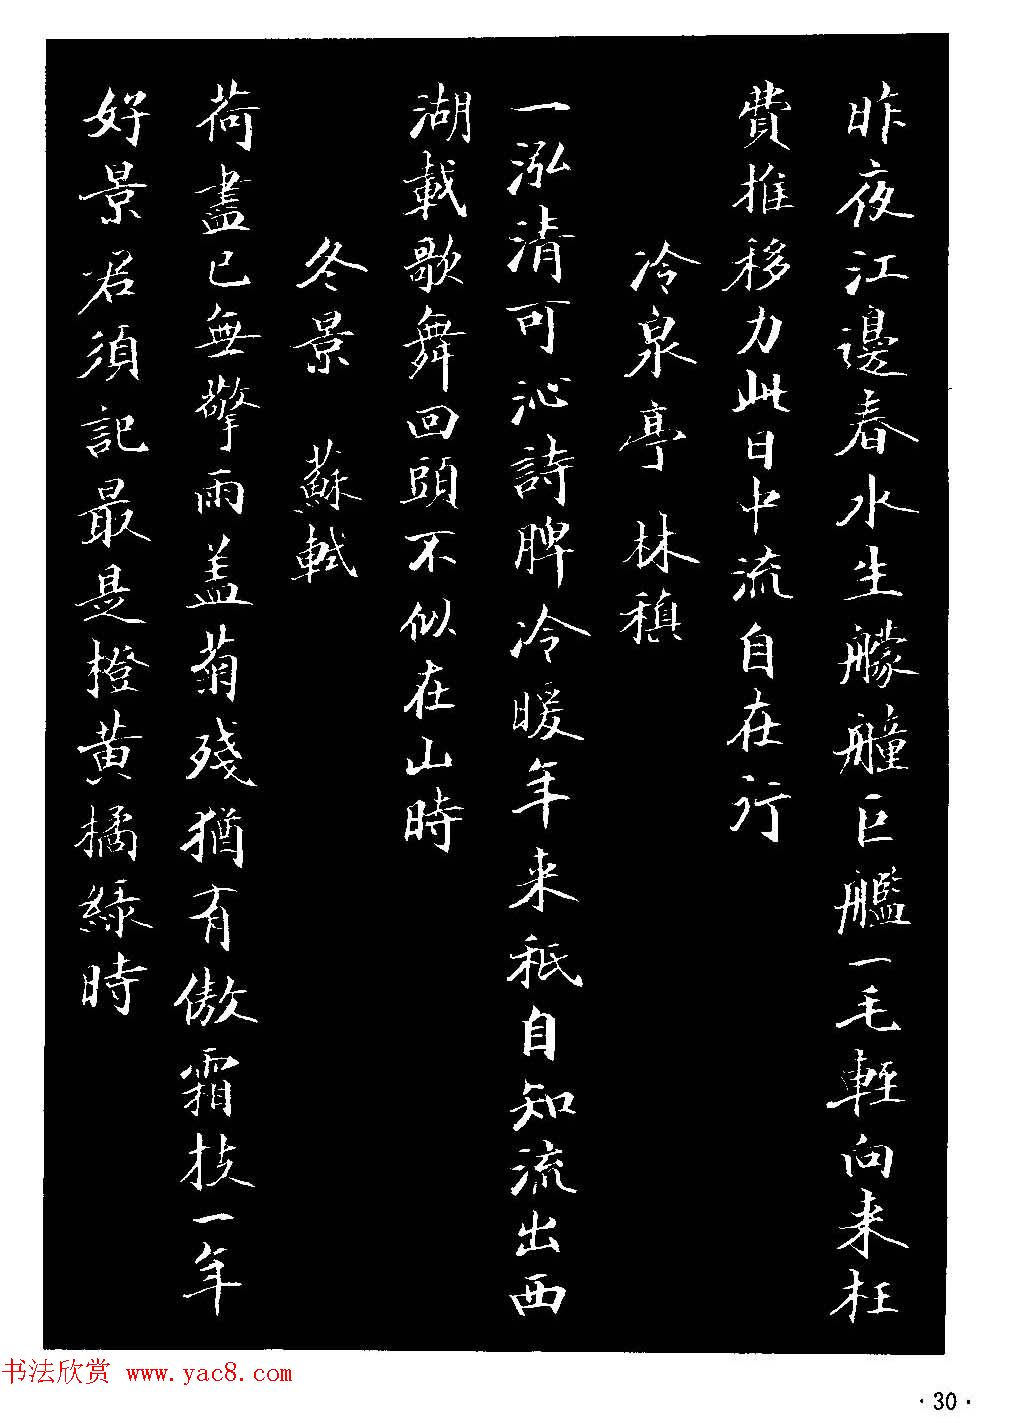 昨夜江邊春水生艨艟巨艦一毛輕向来枉
費推移力此日中流自在行
冷泉亭 林稹
一泓清可沁詩脾冷暖年来秖自知流出西
湖載歌舞回頭不似在山時
冬景 蘇軾
荷盡已無擎雨盖菊殘猶有傲霜枝一年
好景君須記最是橙黄橘緑時
书法欣赏 www.yac8.com
·30·